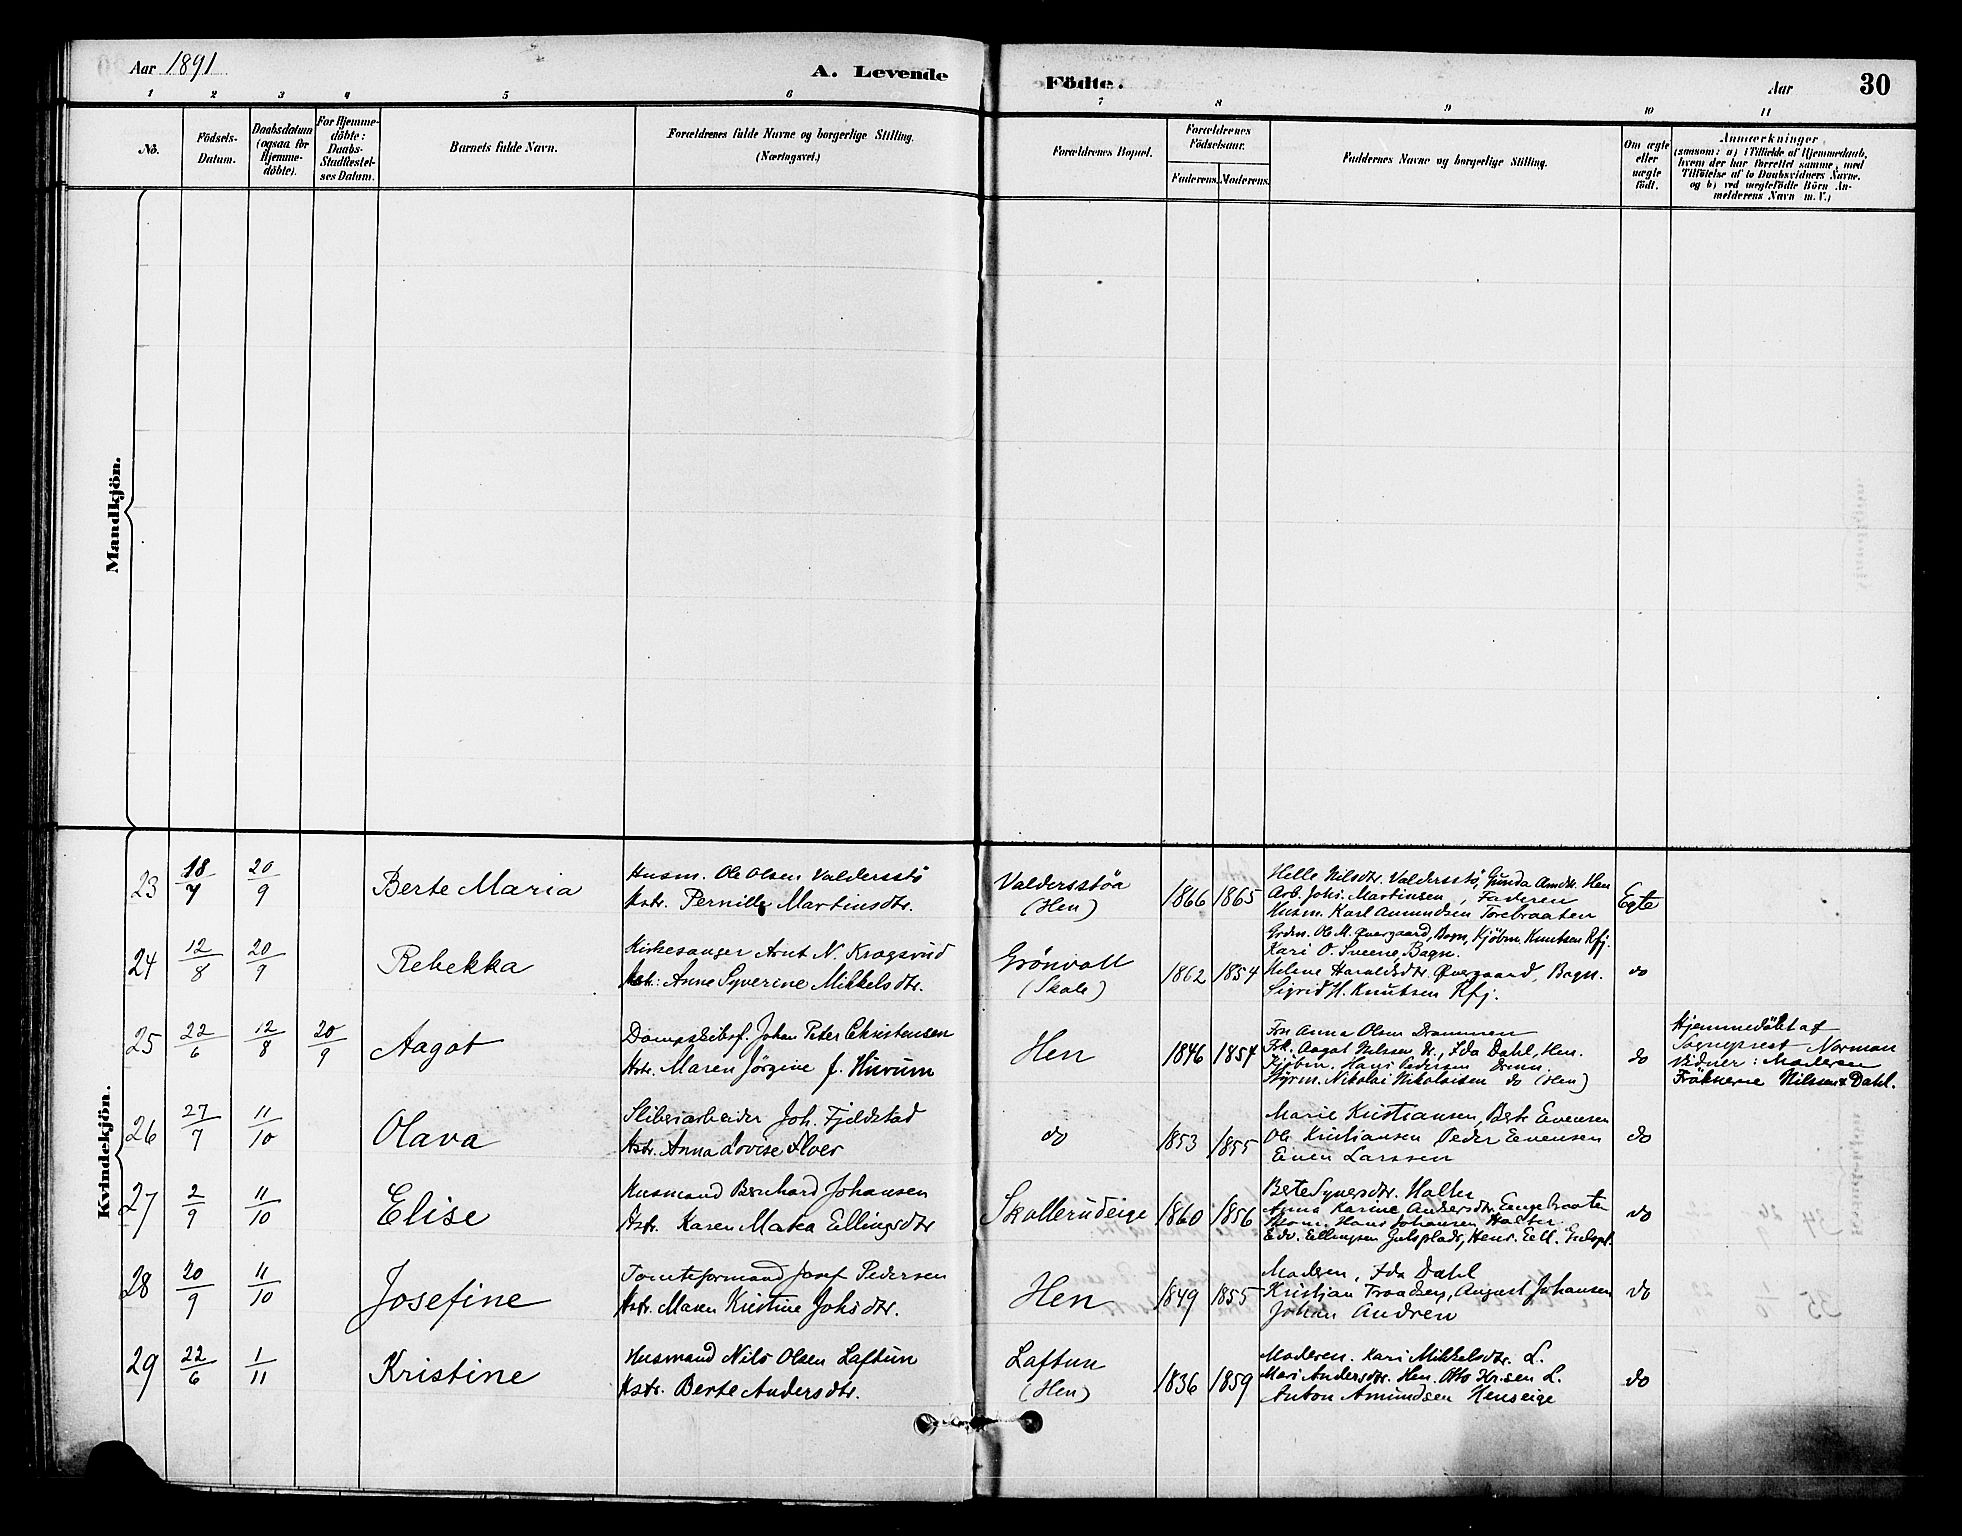 Aar 1891
A. Levende
Födte.
Aar
30
1 2 3 4 5 6 7 8 9 10 11
No.
Födsels-
Datum.
Daabsdatum
(ogsaa for
Hjemme-
döbte).
For Hjemme-
döbte:
Daabs-
Stadfestel-
ses Datum.
Barnets fulde Navn.
Forældrenes fulde Navne og borgerlige Stilling.
(Næringsvei.)
Forældrenes Bopæl.
Forældrenes
Födselsaar.
Faderens. Moderens.
Faddernes Navne og borgerlige Stilling.
Om ægte
eller
uægte
födt.
Anmærkninger
(saasom: a) i Tilfælde af Hjemmedaab,
hvem der har forrettet samme, med
Tilföielse af to Daabsvidners Navne.
og b) ved uægtefödte Börn An-
melderens Navn m. V.)
Mandkjön.
Kvindekjön.
23 18/7 20/9
Berte Maria
Husm. Ole Olsen Valdersstö
Hstr. Pernille Martinsdtr.
Valdersstøa
(Hen)
1866 1865
Helle Nilsdtr. Valdersstø, Gunda Amdtr. Hen
Arb. Johs. Martinsen, Faderen
Husm. Karl Amundsen Torebraaten
Egte
24 12/8 20/9
Rebekka
Kirkesanger Arnt N. Kragsrud
Hstr. Anne Syverine Mikkelsdtr.
Grönvoll
(Skole)
1862 1854
Grdm. Ole M. Øvergaard, Bagn, Kjøbm. Knutsen Kfj.
Kari O. Sneene Bagn.
Helene Haraldsdtr. Øvergaard, Bagn.
Sigrid H. Knutsen Kfj.
do
25 22/6 12/8 20/9
Aagot
Dampskibsf. Johan Peter Christensen
Hstr. Maren Jörgine f. Hurum
Hen
1846 1854
Fru Anna Olsen Drammen
Frk. Aagot Nilsen, Ida Dahl, Hen.
Kjöbm. Hans Pedersen Dramn.
Styrm. Nikolai Nikolaisen do (Hen)
do
Hjemmedöbt af
Sogneprest Norman
Vidner: Moderen
Fröknerne Nilsen & Dahl.
26 27/7 11/10
Olava
Sliberiarbeider Joh. Fjeldstad
Hstr. Anna Lovise Floer
do
1853 1855
Marie Kristiansen, Berte Evensen
Ole Kristiansen Peder Evensen
Even Larssen
do
27 2/9 11/10
Elise
Husmand Bernhard Johansen
Hstr. Karen Matea Ellingsdtr
Skollerudeige
1860 1856
Berte Syversdtr. Halte
Anna Karine Andersdtr. Engebraaten
Hans Johansen
Edv. Ellingsen Gulsplads, Henr. Ell. Gulspl.
do
28 20/9 11/10
Josefine
Tomteformand Josef Pedersen
Hstr. Maren Kristine Johsdtr.
Hen
1849 1855
Moderen, Ida Dahl
Kristian Frandsen, August Johansen
Johan Andren
do
29 22/6 1/11
Kristine
Husmand Nils Olsen Laftun
Hstr. Berte Andersdtr.
Laftun
(Hen)
1836 1859
Moderen. Kari Mikkelsdtr. L.
Mari Andersdtr. Hen. Otto Kr.sen L.
Anton Amundsen Henseige
do